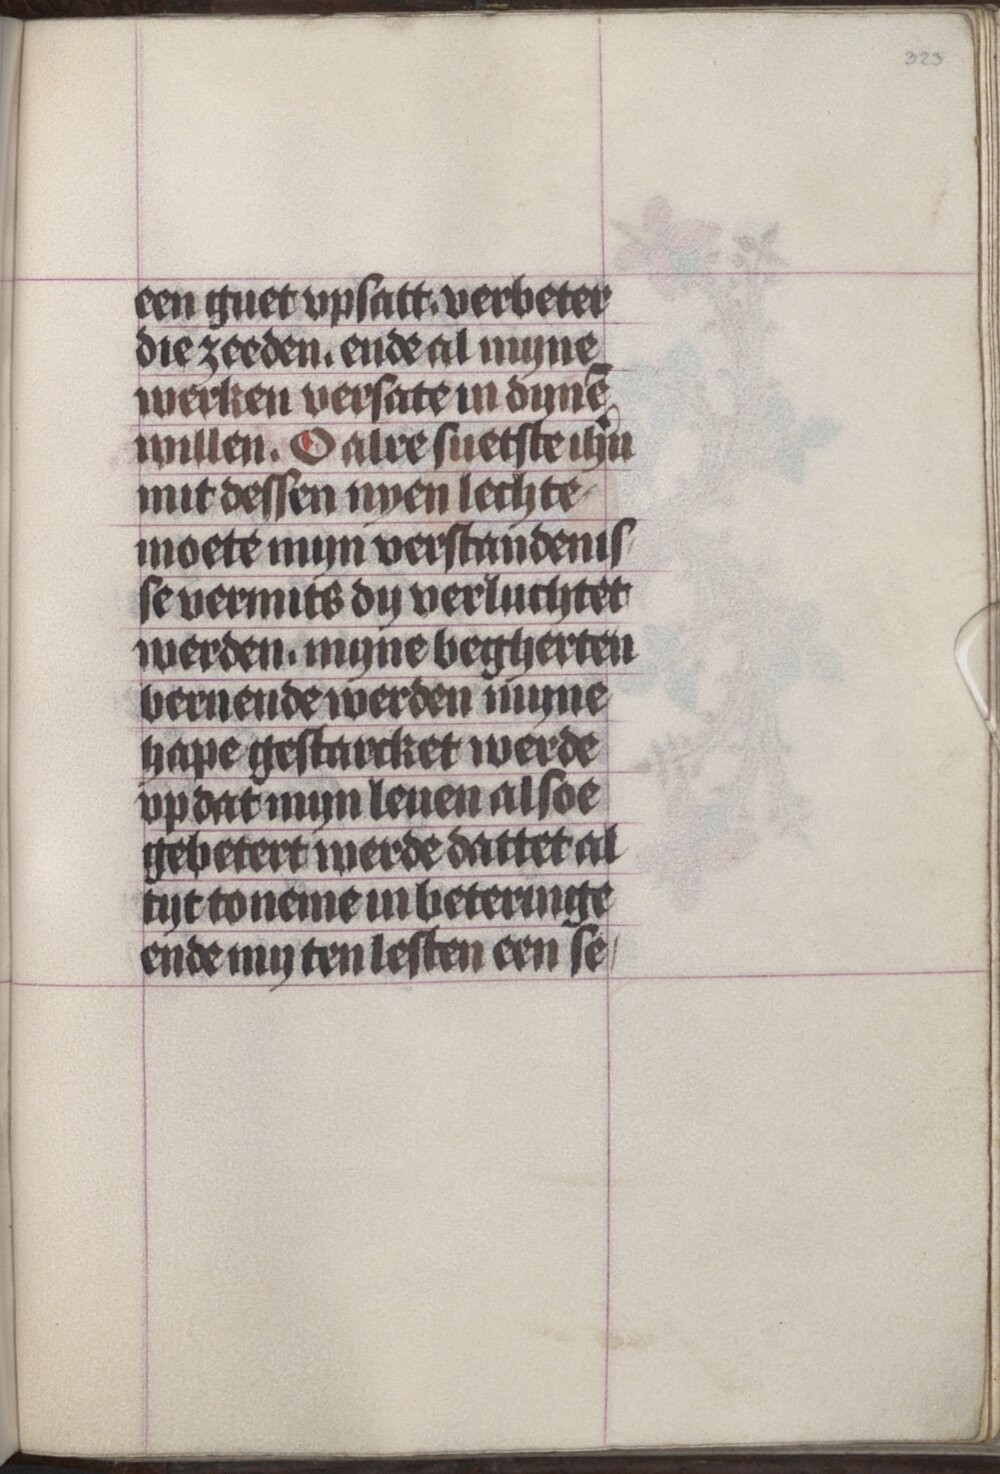 323
een guet vpsatt. verbeter
die zeeden. ende al myne
werken versate in dynē
willen. O alre suetste ihū
mit dessen nyen lechte
moete myn verstandenis/
se vermits dy verluchtet
werden. myne begherten
bernende werden myne
hape gestarcket werde
vp dat myn leuen alsoe
gebetert werde dattet al
tyt toneme in beteringe
ende my ten lesten een se/